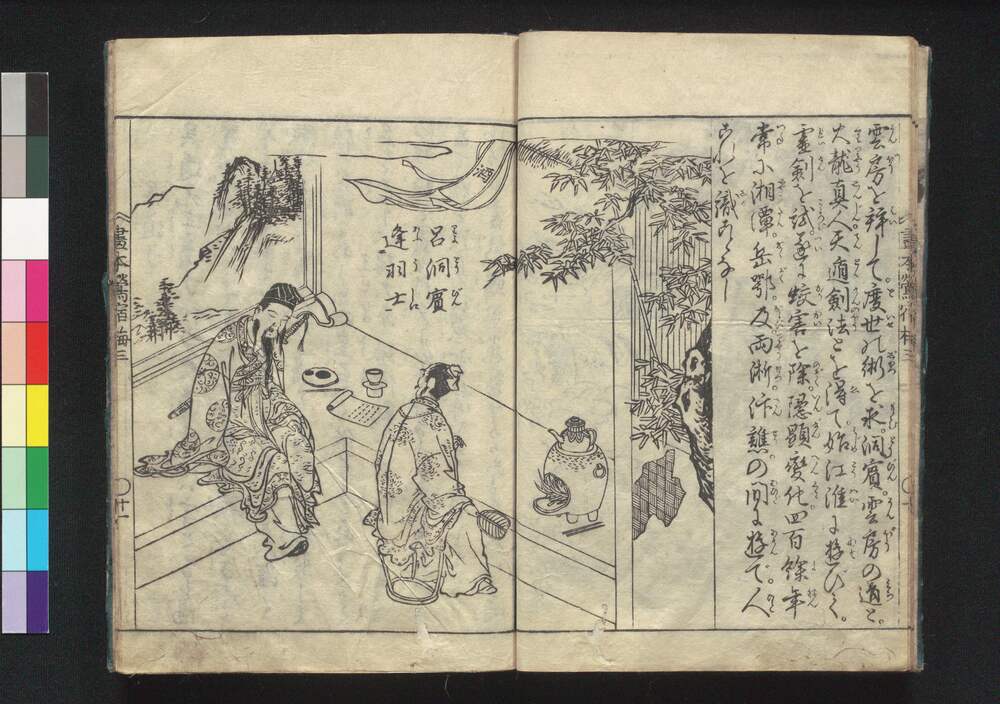 雲房を辞して。度世の術を求。洞賓。雲房の道と。
火龍真人天遁剣法とを得て。始江淮に遊びく。
霊剣を試。遂に蛟害を除。隠顕変化四百餘年
常に湘潭岳鄂。及両浙汴譙の間に遊で。人
これを識ことなし
呂洞賓
逢羽士